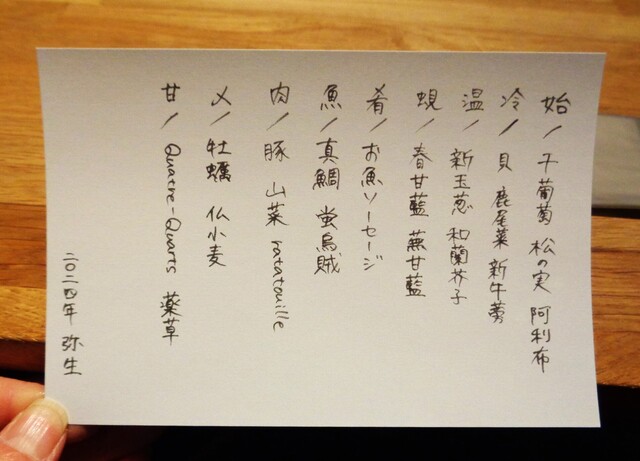 始/干葡萄 松の実 阿利布
冷/貝 鹿尾菜 新牛蒡
温/新玉葱 和蘭芥子
蜆/春甘藍 蕪甘藍
肴/お魚ソーセージ
魚/真鯛 蛍烏賊
肉/豚 山菜 ratatouille
〆/牡蠣 仏小麦
甘/Quatre-Quarts 薬草
二〇二四年 弥生